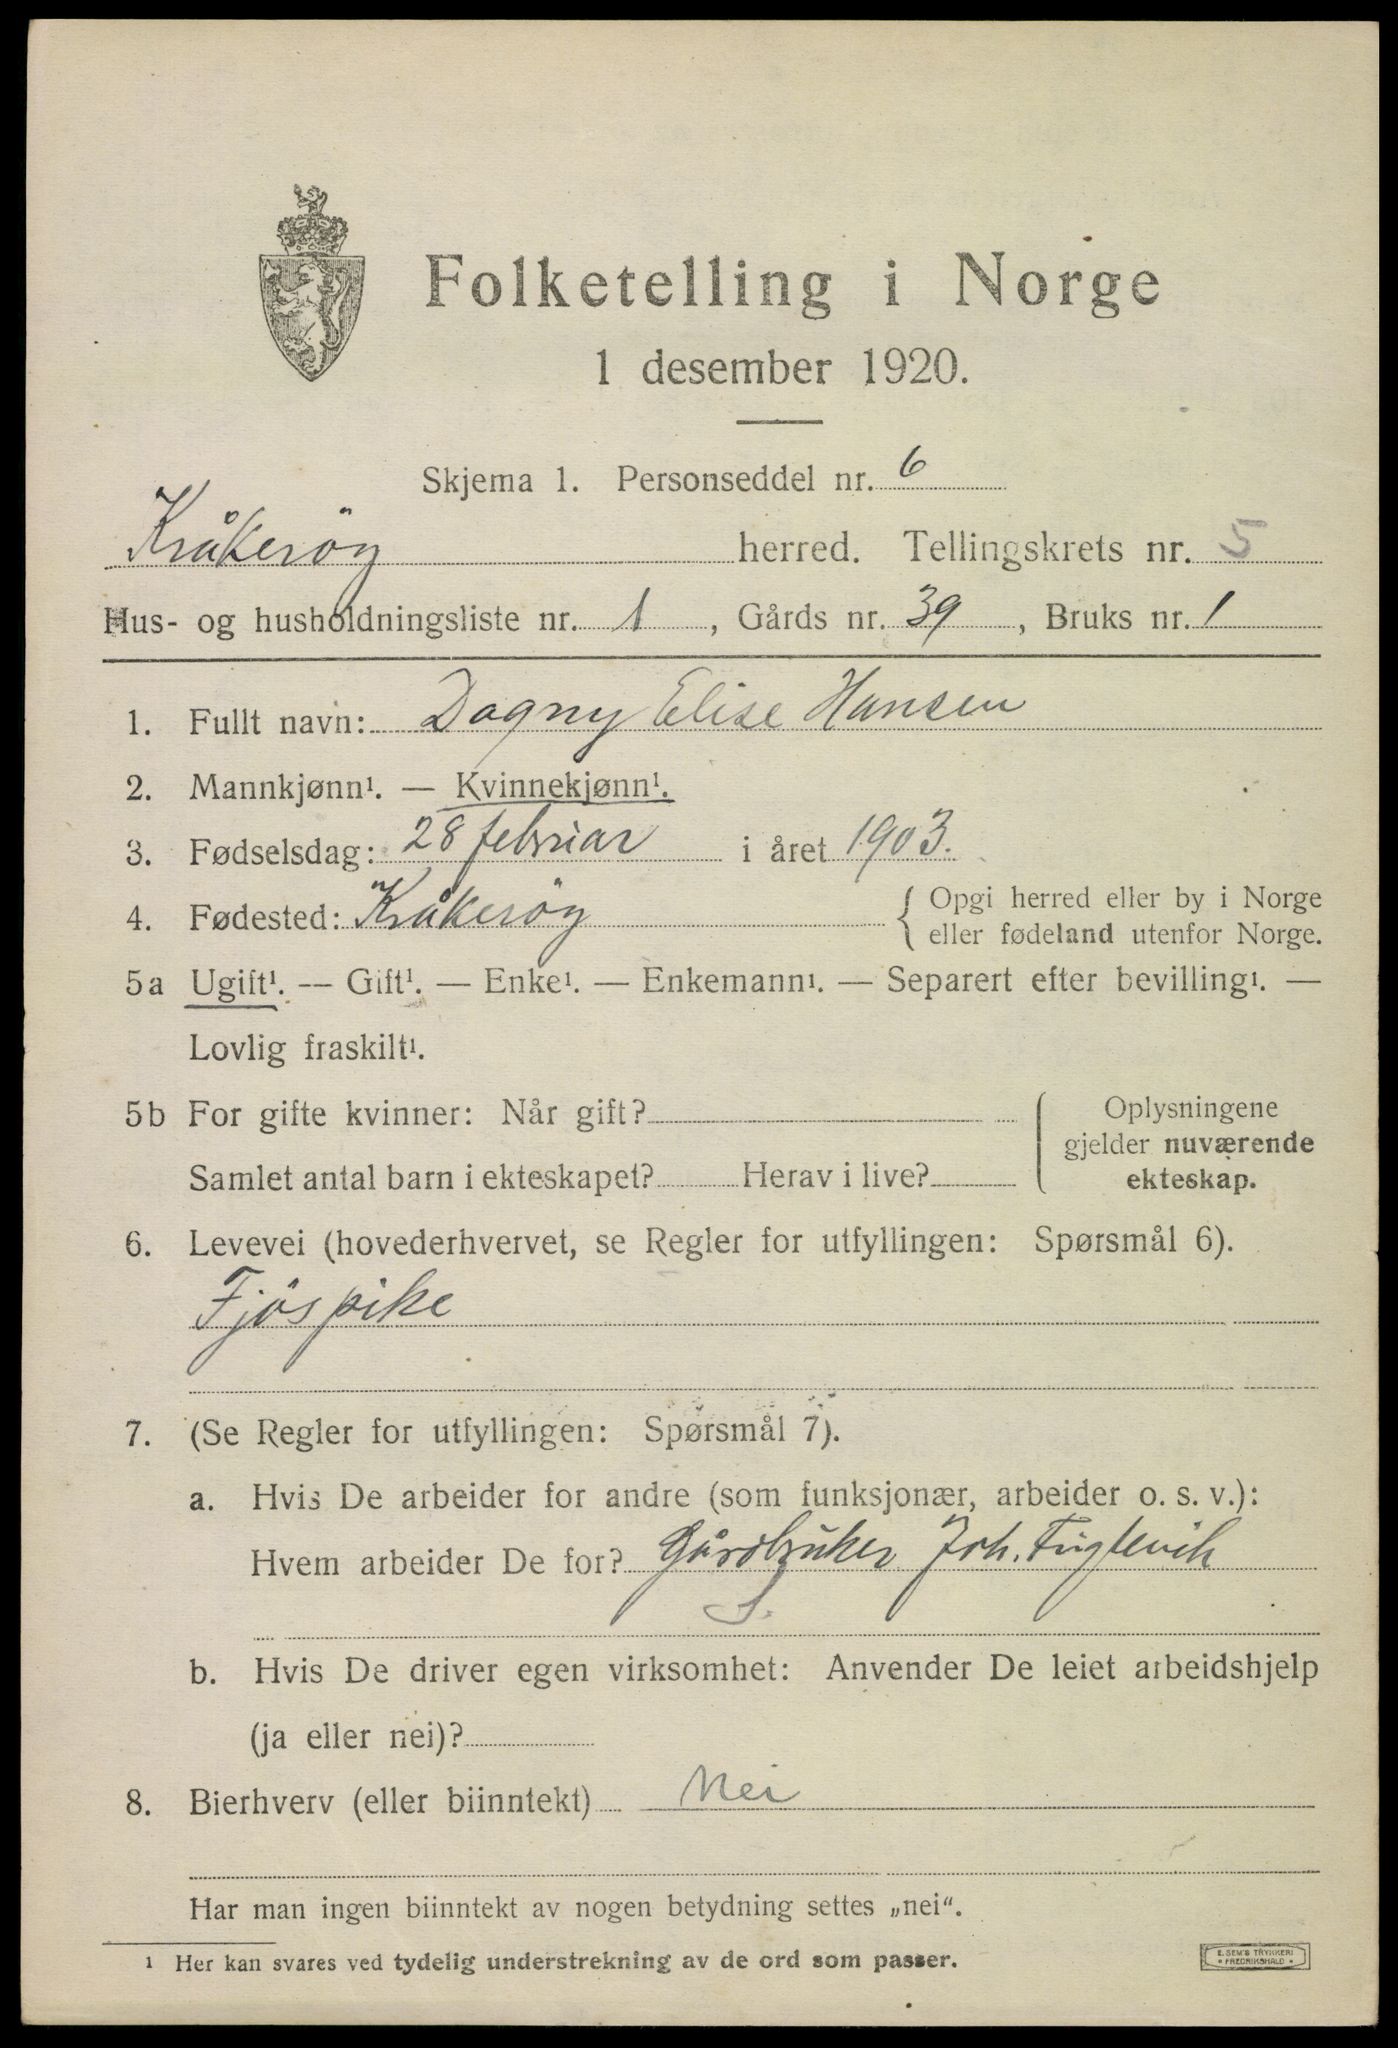 Folketelling i Norge
1 desember 1920.
Skjema 1. Personseddel nr. 6
Kråkeröy herred. Tellingskrets nr. 5
Hus- og husholdningsliste nr. 1, Gårds nr. 39, Bruks nr. 1
1. Fullt navn: Dagny Elise Hansen
2. Mannkjønn¹. — Kvinnekjønn¹.
3. Fødselsdag: 28 februar i året 1903.
4. Fødested: Kråkeröy { Opgi herred eller by i Norge
eller fødeland utenfor Norge.
5a Ugift¹. — Gift¹. — Enke¹. — Enkemann¹. — Separert efter bevilling¹. —
Lovlig fraskilt¹.
5b For gifte kvinner: Når gift?
Samlet antal barn i ekteskapet? Herav i live?
Oplysningene
gjelder nuværende
ekteskap.
6. Levevei (hovederhvervet, se Regler for utfyllingen: Spørsmål 6).
Fjöspike
7. (Se Regler for utfyllingen: Spørsmål 7).
a. Hvis De arbeider for andre (som funksjonær, arbeider o. s. v.):
Hvem arbeider De for? Gårdbruker Joh. Fuglevik
S.
b. Hvis De driver egen virksomhet: Anvender De leiet arbeidshjelp
(ja eller nei)?
8. Bierhverv (eller biinntekt) Nei
Har man ingen biinntekt av nogen betydning settes „nei“.
¹ Her kan svares ved tydelig understrekning av de ord som passer.
E. SEM'S TRYKKERI
* FREDRIKSHALD *